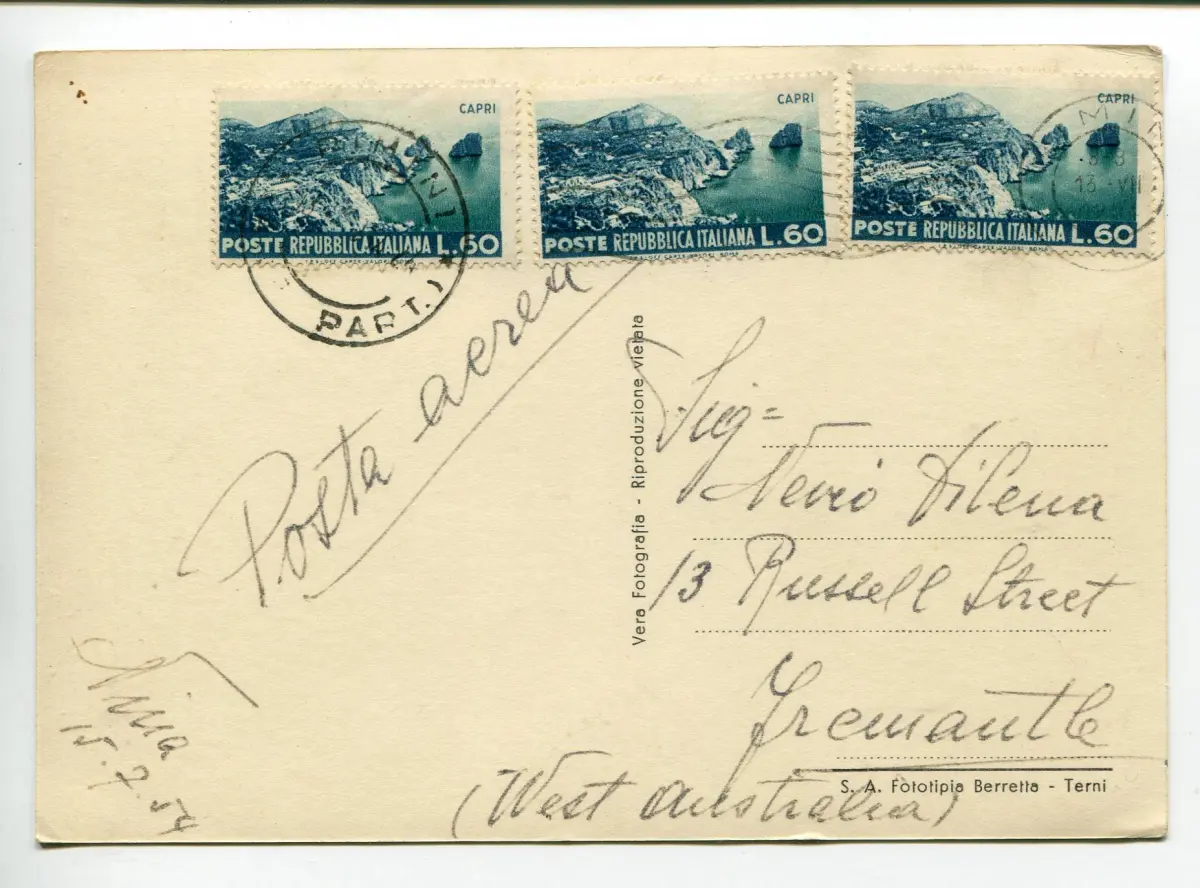 CAPRI
POSTE REPUBBLICA ITALIANA L.60
CAPRI
POSTE REPUBBLICA ITALIANA L.60
CAPRI
POSTE REPUBBLICA ITALIANA L.60
RIMINI
PART.) *
13 VII
Posta aerea
Nina
15.7.54
Vera Fotografia - Riproduzione vietata
Sig=
Nevio Dilena
13 Russell Street
Fremantle
(West Australia)
S. A. Fototipia Berretta - Terni